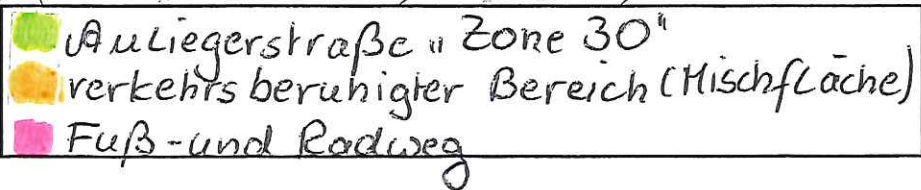 Anliegerstraße „Zone 30"
verkehrsberuhigter Bereich (Mischfläche)
Fuß-und Radweg